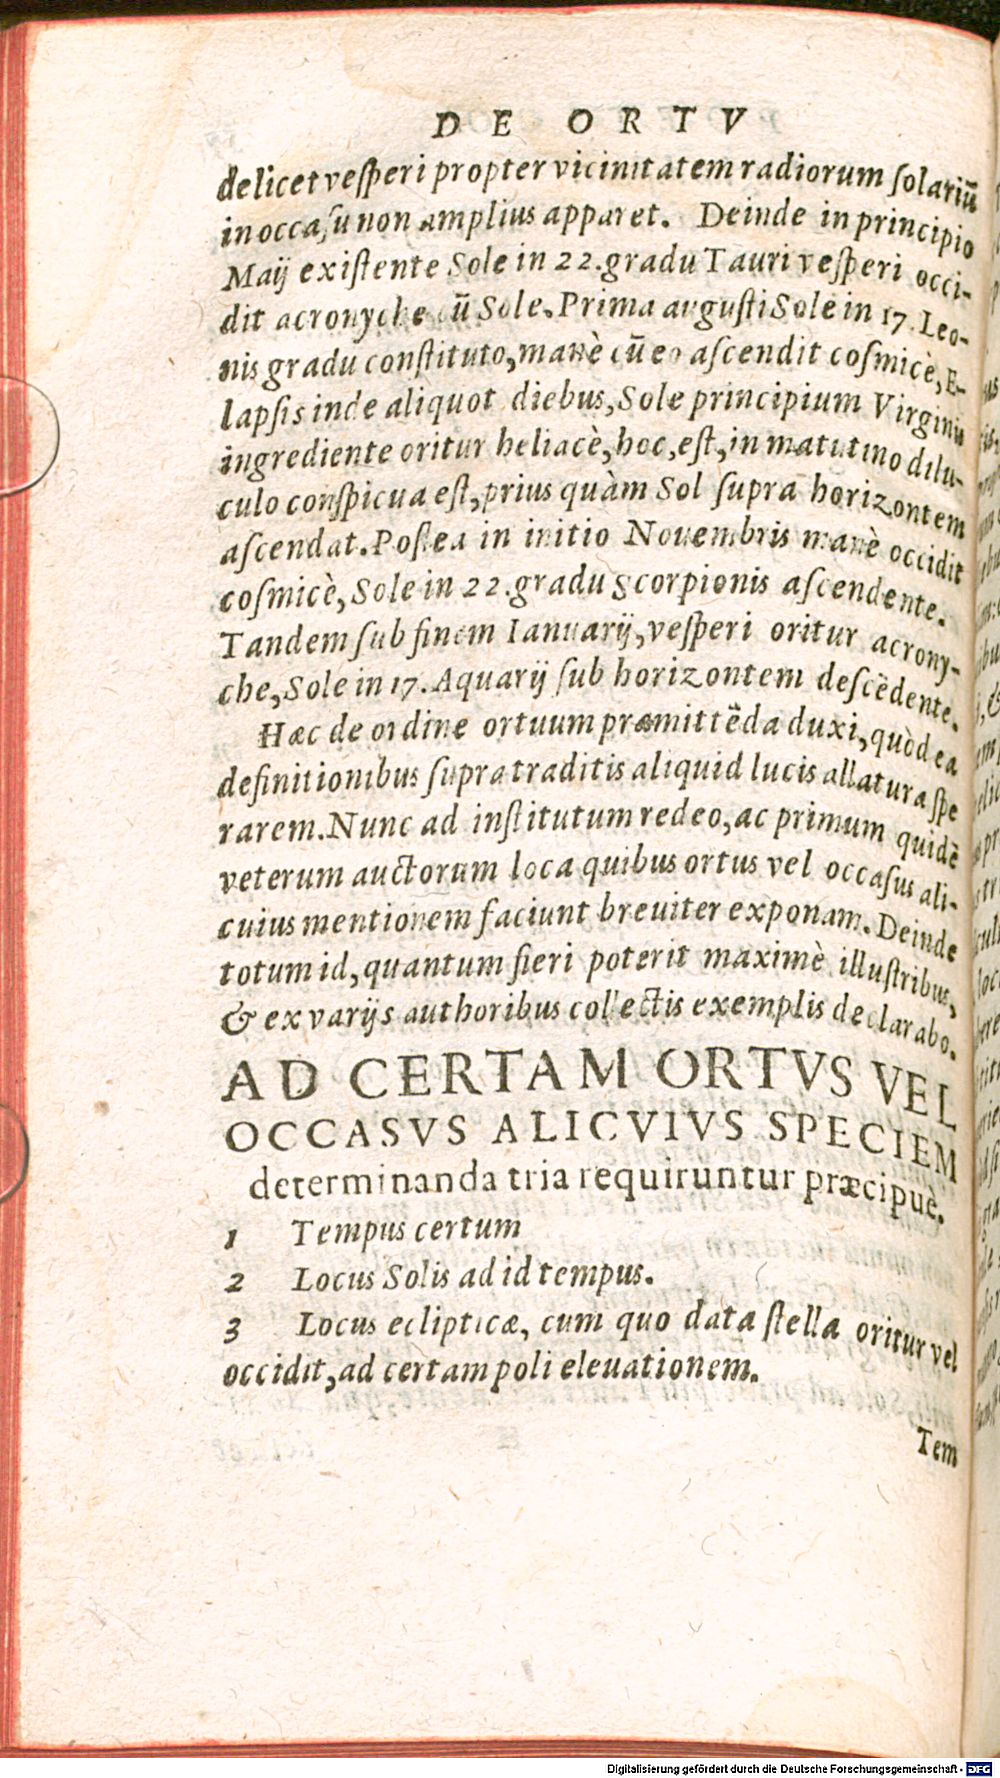 DE ORTV
delicet vesperi propter vicinitatem radiorum solariũ
in occasu non amplius apparet. Deinde in principio
Maij existente Sole in 22. gradu Tauri vesperi occi-
dit acronyche cũ Sole. Prima augusti Sole in 17. Leo-
nis gradu constituto, manè cũ eo ascendit cosmicè, E-
lapsis inde aliquot diebus, Sole principium Virginis
ingrediente oritur heliacè, hoc, est, in matutino dilu-
culo conspicua est, prius quàm Sol supra horizontem
ascendat. Postea in initio Nouembris manè occidit
cosmicè, Sole in 22. gradu scorpionis ascendente.
Tandem sub finem Ianuarij, vesperi oritur acrony-
che, Sole in 17. Aquarij sub horizontem descẽdente.
Hæc de ordine ortuum præmittẽda duxi, quòd ea
definitionibus supra traditis aliquid lucis allatura spe
rarem. Nunc ad institutum redeo, ac primum quidẽ
veterum auctorum loca quibus ortus vel occasus ali-
cuius mentionem faciunt breuiter exponam. Deinde
totum id, quantum fieri poterit maximè illustribus,
& ex varijs authoribus collectis exemplis declarabo.
AD CERTAM ORTVS VEL
OCCASVS ALICVIVS SPECIEM
determinanda tria requiruntur præcipuè.
1 Tempus certum
2 Locus Solis ad id tempus.
3 Locus eclipticæ, cum quo data stella oritur vel
occidit, ad certam poli eleuationem.
Tem
Digitalisierung gefördert durch die Deutsche Forschungsgemeinschaft - DFG